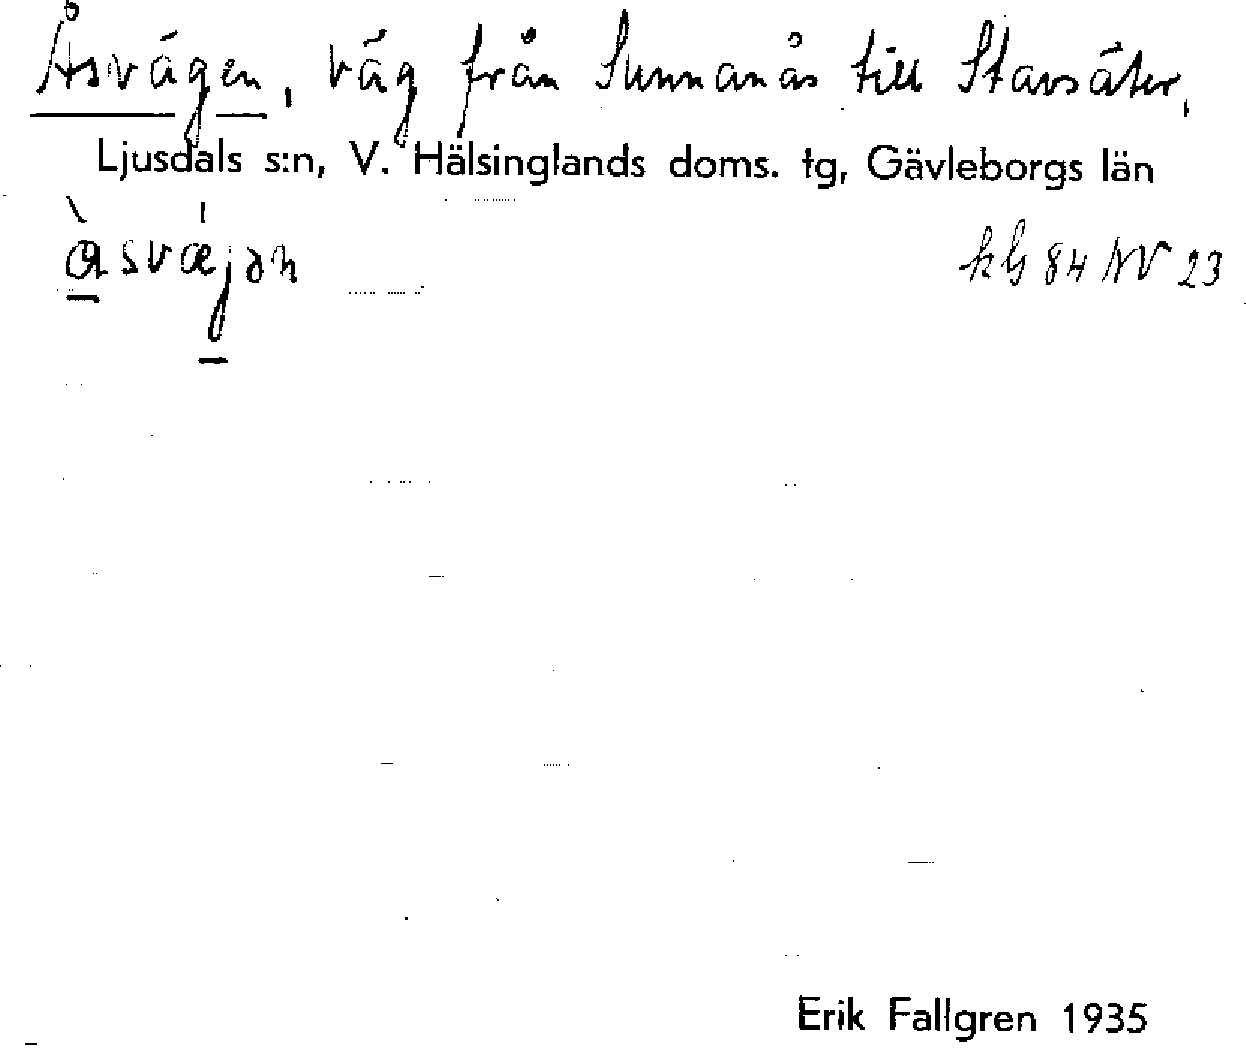 Åsvägen, väg från Sunnanås till Stavsäter,
Ljusdals s:n, V. Hälsinglands doms. tg, Gävleborgs län
åsvæjən kG 84 NV 23
Erik Fallgren 1935